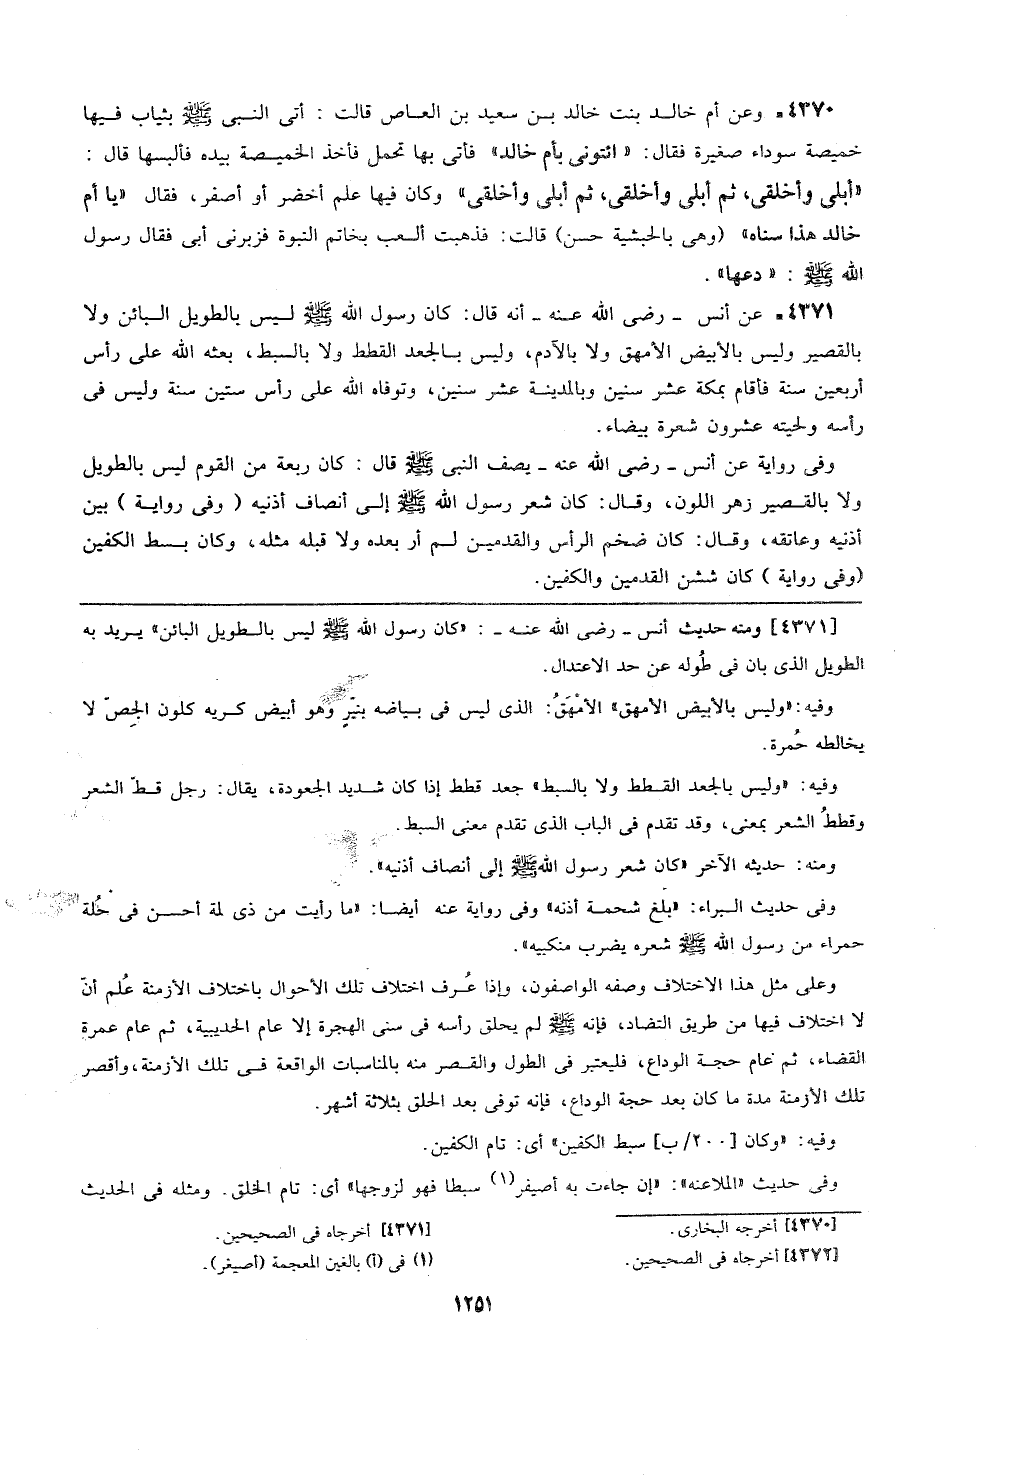 ٤٣٧٠ـ وعن أم خالـد بنت خالد بـن سعيد بن العـاص قالت : أتى النـبى ﷺ بثياب فـيها
خميصة سوداء صغيرة فقال: « ائتونى بأم خالد» فأتى بها تحمل فأخذ الخميـصة بيده فألبسها قال :
«أبلى وأخلقى، ثم أبلى وأخلقى، ثم أبلى وأخلقى» وكان فيها علم أخضر أو أصفر، فقال «يا أم
خالد هذا سناه» (وهى بالحبشية حسن) قالت: فذهبت ألـعب بخاتم النبوة فزبرنى أبى فقال رسول
الله ﷺ : « دعها» .
٤٣٧١ـ عن أنس ـ رضى الله عـنه ـ أنه قال: كان رسول الله ﷺ لـيس بالطويل البـائن ولا
بالقصير وليس بالأبيض الأمهق ولا بالآدم، وليس بـالجعد القطط ولا بالـسبط، بعثه الله على رأس
أربعين سنة فأقام بمكة عشر سنين وبالمدينـة عشر سنين، وتوفاه الله على رأس ستين سنة وليس فى
رأسه ولحيته عشرون شعرة بيضاء.
وفى رواية عن أنس ـ رضى الله عنه ـ يصف النبى ﷺ قال : كان ربعة من القوم ليس بالطويل
ولا بالقـصير زهر اللون، وقـال: كان شعر رسول الله ﷺ إلـى أنصاف أذنيه ( وفى روايـة ) بين
أذنيه وعاتقه، وقـال: كان ضخم الرأس والقدميـن لـم أر بعده ولا قبله مثله، وكان بـسط الكفين
(وفى رواية ) كان ششن القدمين والكفين.
[٤٣٧١] ومنه حديث أنس ـ رضى الله عنـه ـ : «كان رسول الله ﷺ ليس بالـطويل البائن» يـريد به
الطويل الذى بان فى طُوله عن حد الاعتدال.
وفيه:«وليس بالأبيض الأمهق» الأمْهَقُ: الذى ليس فى بـياضه بنيّرٍ وهو أبيض كـريه كلون الجِصّ لا
يخالطه حُمرة.
وفيه: «وليس بالجعد القـطط ولا بالسبط» جعد قطط إذا كان شـديد الجعودة، يقال: رجل قـطّ الشعر
وقططُ الشعر بمعنى، وقد تقدم فى الباب الذى تقدم معنى السبط.
ومنه: حديثه الآخر «كان شعر رسول اللهﷺ إلى أنصاف أذنيه».
وفى حديث الـبراء: «بلغ شحمـة أذنه» وفى رواية عنه أيضـا: «ما رأيت من ذى لمة أحـسن فى حُلة
حمراء من رسول الله ﷺ شعره يضرب منكبيه».
وعلى مثل هذا الاختلاف وصفه الواصفون، وإذا عُـرف اختلاف تلك الأحوال باختلاف الأزمنة عُلم أنّ
لا اختلاف فيها من طريق التضاد، فإنه ﷺ لم يحلق رأسه فى سنى الهجرة إلا عام الحديبية، ثم عام عمرة
القضاء، ثم عام حجـة الوداع، فليعتبر فى الطول والقـصر منه بالمناسبات الواقعة فـى تلك الأزمنة،وأقصر
تلك الأزمنة مدة ما كان بعد حجة الوداع، فإنه توفى بعد الحلق بثلاثة أشهر.
وفيه: «وكان [٢٠٠/ب] سبط الكفين» أى: تام الكفين.
وفى حديث «الملاعنه»: «إن جاءت به أصيفر(١) سبطا فهو لزوجها» أى: تام الخلق. ومثله فى الحديث
[٤٣٧٠] أخرجه البخارى.
[٤٣٧١] أخرجاه فى الصحيحين.
[٤٣٧٢] أخرجاه فى الصحيحين.
(١) فى (أ) بالغين المعجمة (أصيغر).
١٢٥١